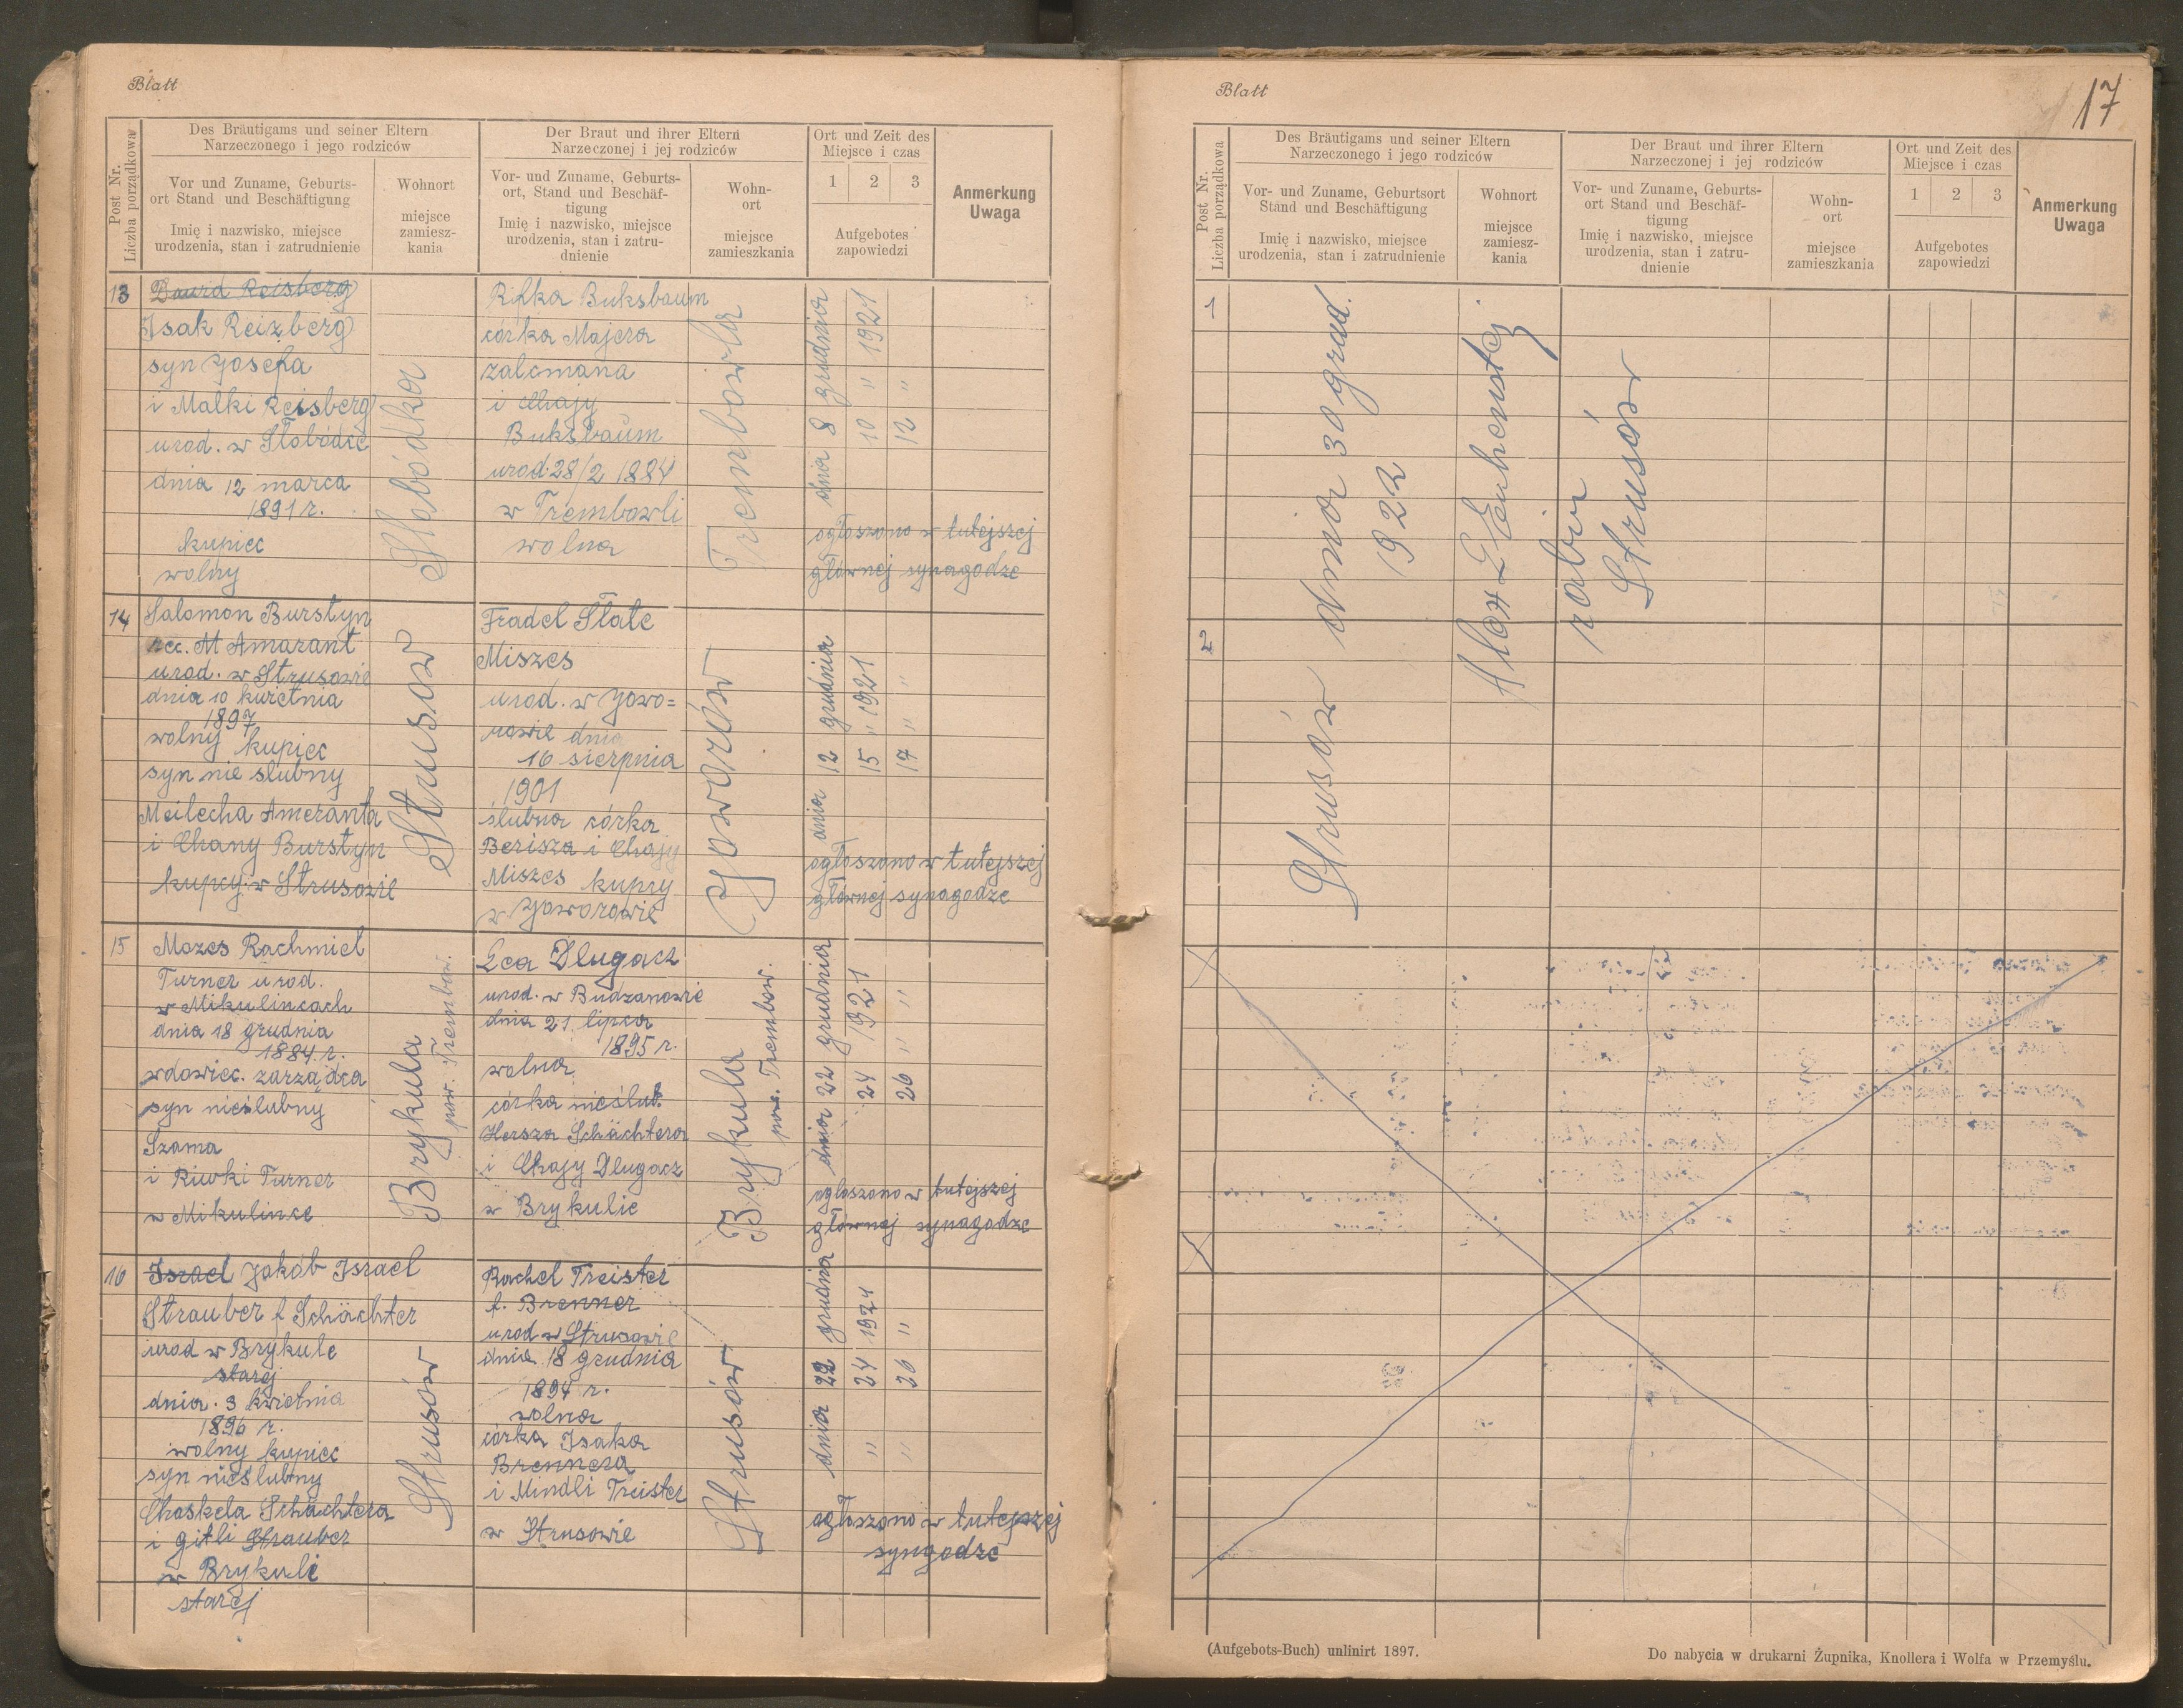 Blatt
Post Nr.
Liczba porządkowa
Des Bräutigams und seiner Eltern
Narzeczonego i jego rodziców
Vor und Zuname, Geburts-
ort Stand und Beschäftigung
Imię i nazwisko, miejsce
urodzenia, stan i zatrudnienie
Wohnort
miejsce
zamiesz-
kania
Der Braut und ihrer Eltern
Narzeczonej i jej rodziców
Vor- und Zuname, Geburts-
ort, Stand und Beschäf-
tigung
Imię i nazwisko, miejsce
urodzenia, stan i zatru-
dnienie
Wohn-
ort
miejsce
zamieszkania
Ort und Zeit des
Miejsce i czas
1 2 3
Aufgebotes
zapowiedzi
Anmerkung
Uwaga
13
Reisberg
Isak Reizberg
syn Josefa
i Malki Reisberg
urod. w Słobódce
dnia 12 marca
1891 r.
kupiec
wolny
Słobódka
Rifka Buksbaum
córka Majera
zalcmana
i Chajy
Buksbaum
urod. 28/2 1884
w Trembowli
wolna
Trembowla
dnia 8 grudnia
10 " 1921
12 "
ogłoszono w tutejszej
głównej synagodze
14
Salomon Burstyn
rec. M Amarant
urod. w Strusowie
dnia 10 kwietnia
1897
wolny kupiec
syn nie slubny
Meilecha Ameranta
i Chany Burstyn
kupcy w Strusowie
Strusow
Fradel Slate
Miszes
urod. w Jawo=
rowie dnia
16 sierpnia
1901
ślubna córka
Berisza i Chajy
Miszes kupcy
w Jaworowie
Jaworów
dnia 12 grudnia
15 " 1921
17 " "
ogłoszono w tutejszej
głównej synagodze
15
Mozes Rachmiel
Turner urod.
w Mikulincach
dnia 18 grudnia
1884. r.
wdowiec. zarządca
syn nieślubny
Szama
i Riwki Turner
w Mikulince
Brykula
pow. Trembow.
Lea Dlugacz
urod. w Budzanowie
dnia 21 lipca
1895 r.
wolna
córka nieślub.
Hersza Schächtera
i Chajy Dlugacz
w Brykulie
Brykula
pow. Trembow.
dnia 22 grudnia
24 1921
26 " "
ogloszono w tutejszej
głównej synagodze
16
Israel Jakób Israel
Strauber f Schächter
urod w Brykule
starej
dnia. 3 kwietnia
1896 r.
wolny kupiec
syn nieślubny
Chaskela Schächtera
i gitli Strauber
w Brykuli
starej
Strusów
Rachel Treister
f. Brenner
urod w Strusowie
dnia 18 grudnia
1894 r.
wolna
córka Isaka
Brennera
i Mindli Treister
w Strusowie
Strusów
dnia 22 grudnia
" 24 1921
" 26 "
ogłoszono w tutejszej
syngodze
Blatt
17
Post Nr.
Liczba porządkowa
Des Bräutigams und seiner Eltern
Narzeczonego i jego rodziców
Vor- und Zuname, Geburtsort
Stand und Beschäftigung
Imię i nazwisko, miejsce
urodzenia, stan i zatrudnienie
Wohnort
miejsce
zamiesz-
kania
Der Braut und ihrer Eltern
Narzeczonej i jej rodziców
Vor- und Zuname, Geburts-
ort Stand und Beschäf-
tigung
Imię i nazwisko, miejsce
urodzenia, stan i zatru-
dnienie
Wohn-
ort
miejsce
zamieszkania
Ort und Zeit des
Miejsce i czas
1 2 3
Aufgebotes
zapowiedzi
Anmerkung
Uwaga
1
2
Strusów dnia 30 grud.
1922
rabin
Strusów
(Aufgebots-Buch) unlinirt 1897.
Do nabycia w drukarni Żupnika, Knollera i Wolfa w Przemyślu.